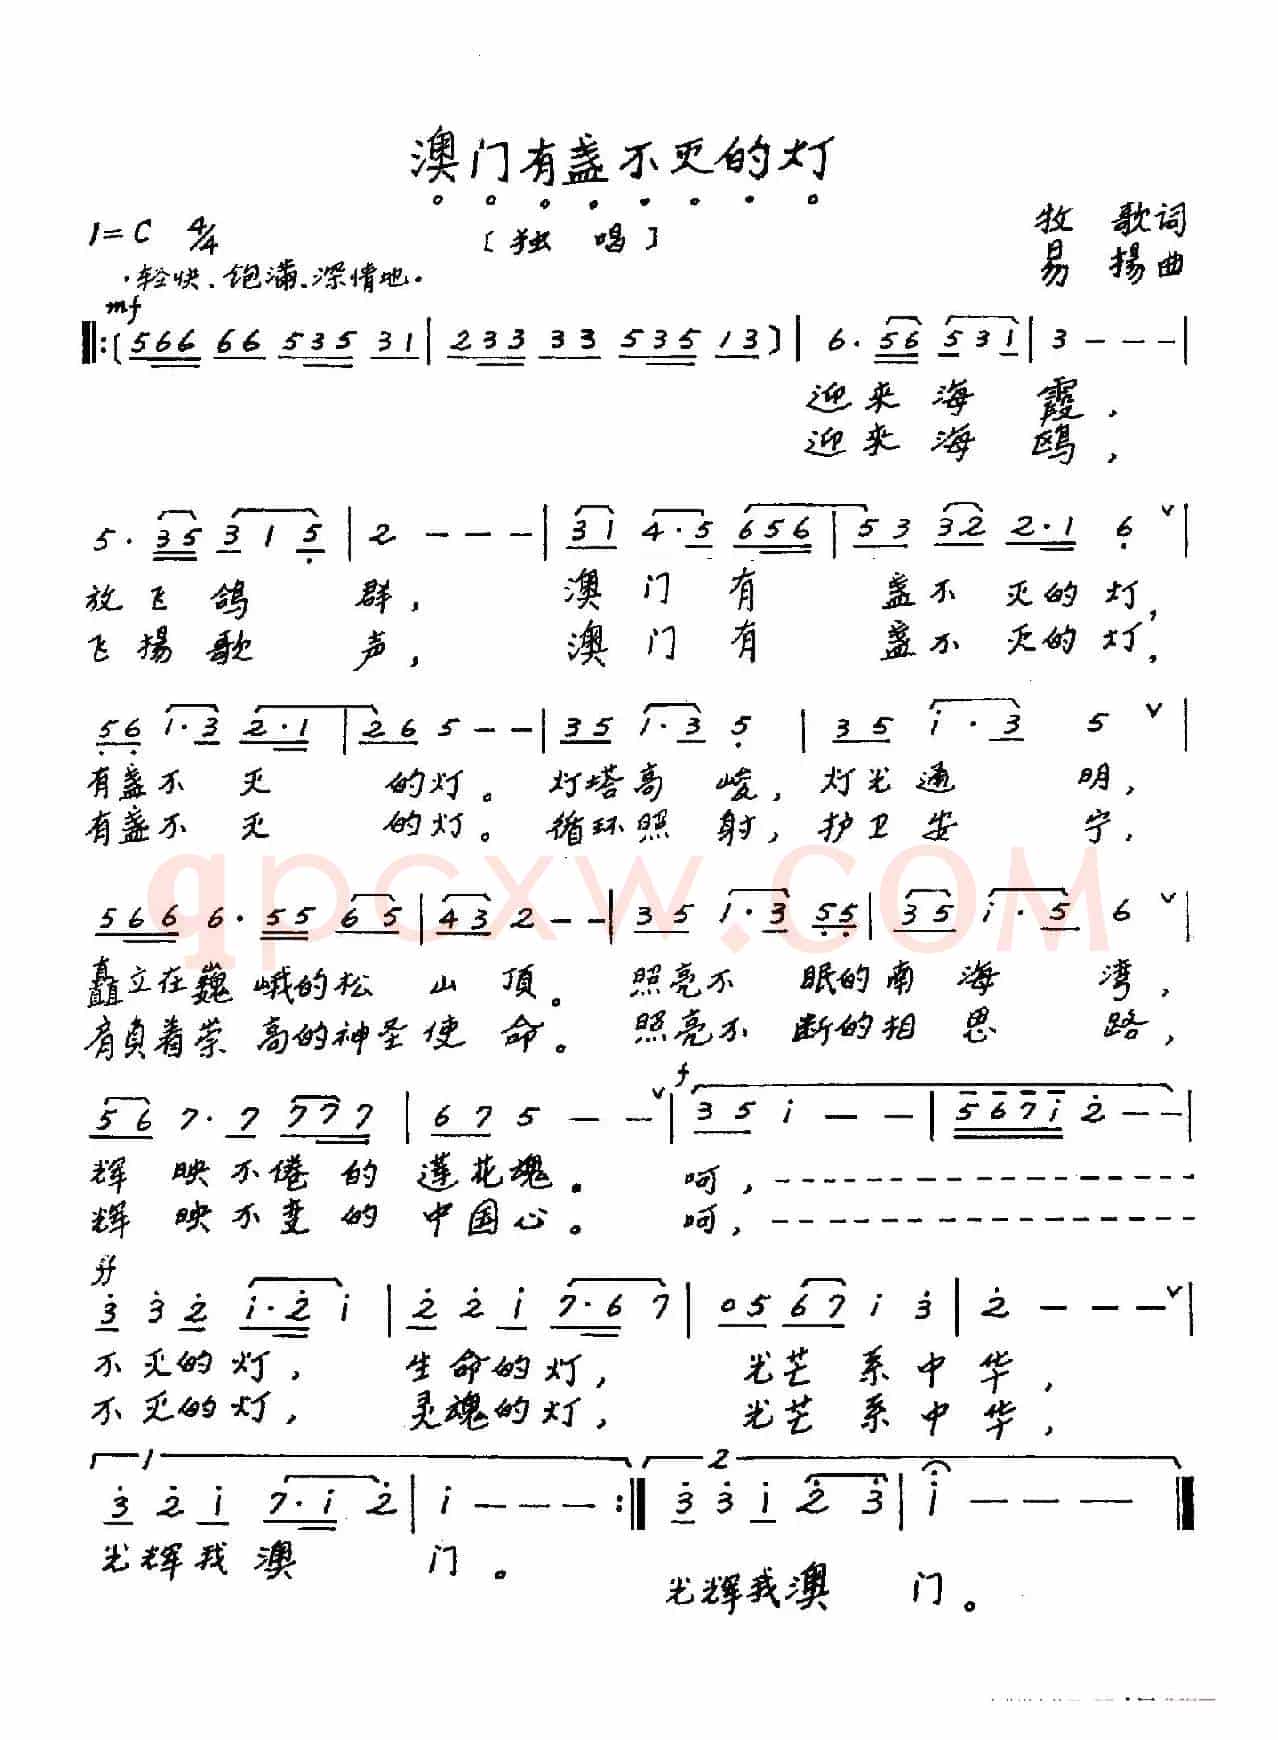 澳门有盏不灭的灯
1=C 4/4
〔独 唱〕
牧 歌词
易 揚曲
·轻快、饱满、深情地·
mf
‖:(566 66 535 31 | 233 33 535 13) | 6· 56 531 | 3 - - - |
迎来海霞,
迎来海鸥,
5· 35 315 | 2 - - - | 31 4·5 656 | 53 32 2·1 6 v |
放飞鸽群, 澳门有 盏不灭的灯,
飞揚歌声, 澳门有 盏不灭的灯,
56 1·3 2·1 | 26 5 - - | 35 1·3 5 | 35 i·3 5 v |
有盏不灭 的灯。灯塔高峻,灯光通明,
有盏不灭 的灯。循环照射,护卫安宁,
qpcxw.COM
566 6·55 65 | 43 2 - - | 35 1·3 55 | 35 i·5 6 v |
矗立在巍峨的松山顶。照亮不眠的南海湾,
肩负着崇高的神圣使命。照亮不断的相思路,
56 7·7 777 | 67 5 - - v | f 35 i - - | 567i 2 - - |
辉映不倦的莲花魂。呵,----------------
辉映不变的中国心。呵,----------------
ff
3 3 2 i·2 i | 2 2 i 7·6 7 | 05 67 i 3 | 2 - - - v |
不灭的灯, 生命的灯, 光芒系中华,
不灭的灯, 灵魂的灯, 光芒系中华,
1 2
3 2 i 7·i 2 | i - - - :‖ 3 3 i 2 3 | i - - - ‖
光辉我澳门。
光辉我澳门。